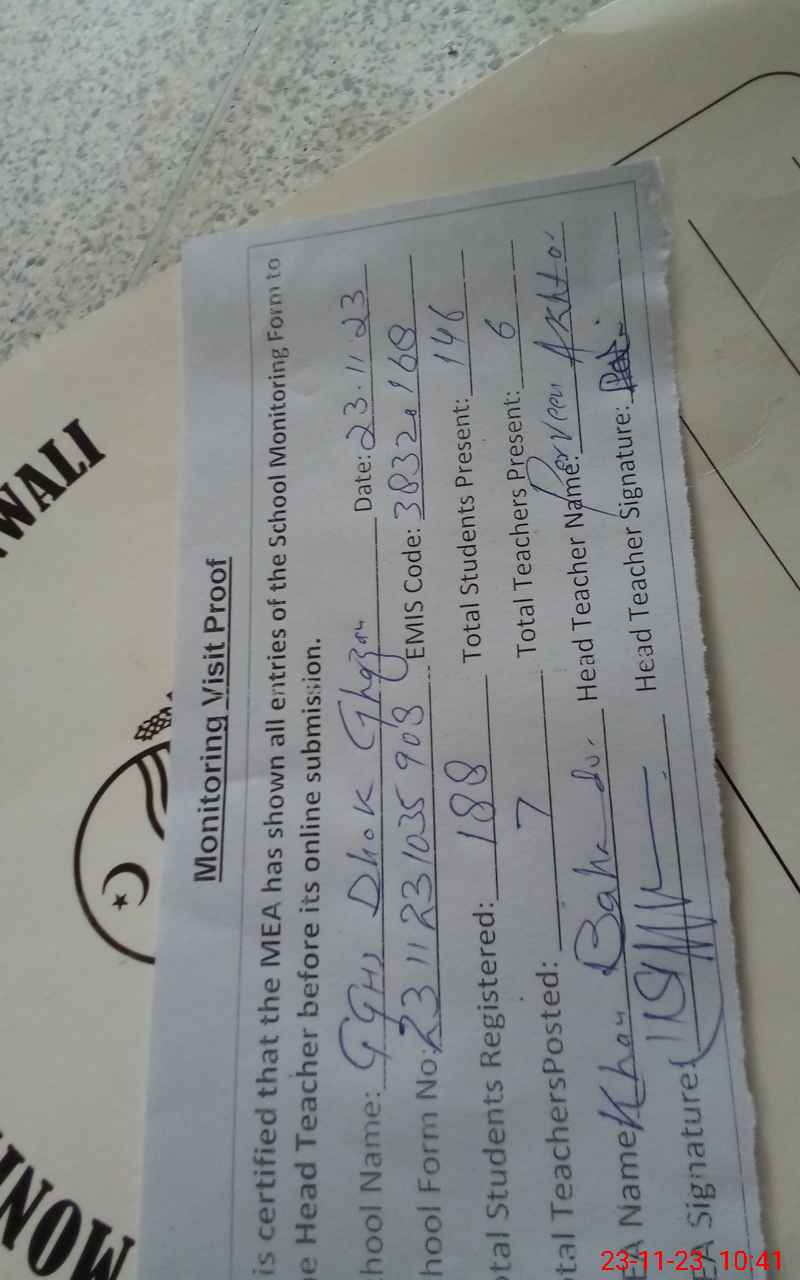 WALI
MONI
Monitoring Visit Proof
is certified that the MEA has shown all entries of the School Monitoring Form to
e Head Teacher before its online submission.
hool Name: GGHS Dhok Ghazan Date: 23.11.23
hool Form No: 2311231035908 EMIS Code: 38320168
tal Students Registered: 188 Total Students Present: 146
tal TeachersPosted: 7 Total Teachers Present: 6
EA Name Khan Bahadur Head Teacher Name: Perveen Akhtar
EA Signature: Head Teacher Signature:
23-11-23 10:41